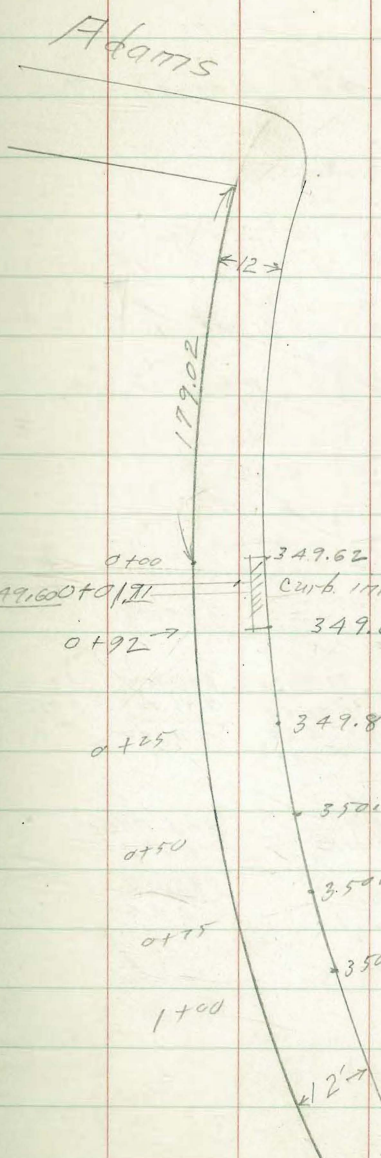 Adams
12
179.02
0+00
349.62
49.60
Curb
0+92
349.
0+25
349.8
0+50
350.
0+75
350
1+00
12'